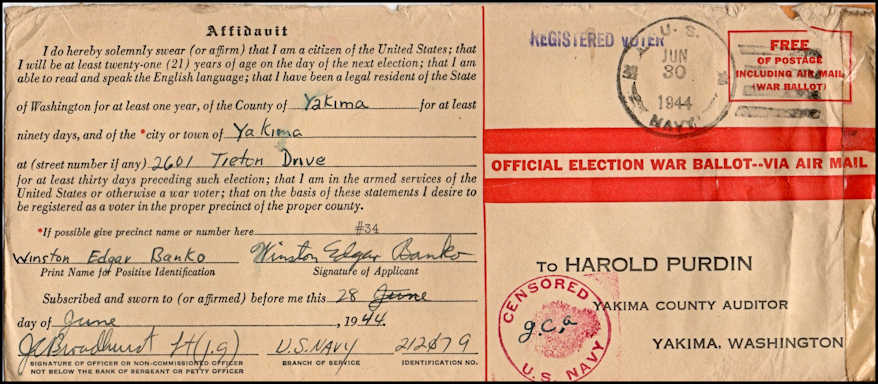 Affidavit
I do hereby solemnly swear (or affirm) that I am a citizen of the United States; that
I will be at least twenty-one (21) years of age on the day of the next election; that I am
able to read and speak the English language; that I have been a legal resident of the State
of Washington for at least one year, of the County of Yakima for at least
ninety days, and of the *city or town of Yakima
at (street number if any) 2601 Tieton Drive
for at least thirty days preceding such election; that I am in the armed services of the
United States or otherwise a war voter; that on the basis of these statements I desire to
be registered as a voter in the proper precinct of the proper county.
*If possible give precinct name or number here #34
Winston Edgar Banko Winston Edgar Banko
Print Name for Positive Identification Signature of Applicant
Subscribed and sworn to (or affirmed) before me this 28 June
day of June, 1944.
JC Broadhurst Lt(j.g) U.S. NAVY 212679
SIGNATURE OF OFFICER OR NON-COMMISSIONED OFFICER BRANCH OF SERVICE IDENTIFICATION NO.
NOT BELOW THE RANK OF SERGEANT OR PETTY OFFICER
REGISTERED VOTER
U. S.
JUN
30
1944
NAVY
FREE
OF POSTAGE
INCLUDING AIR MAIL
(WAR BALLOT)
OFFICIAL ELECTION WAR BALLOT--VIA AIR MAIL
TO HAROLD PURDIN
YAKIMA COUNTY AUDITOR
YAKIMA, WASHINGTON
CENSORED
g.c.a
U.S. NAVY